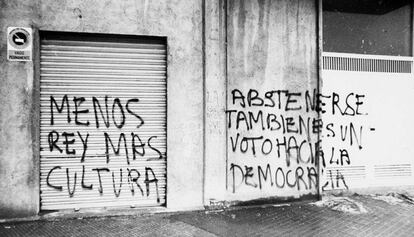 VADO
PERMANENTE
MENOS
REY MAS
CULTURA
ABSTENERSE.
TAMBIEN ES UN-
VOTO HACIA LA
DEMOCRACIA